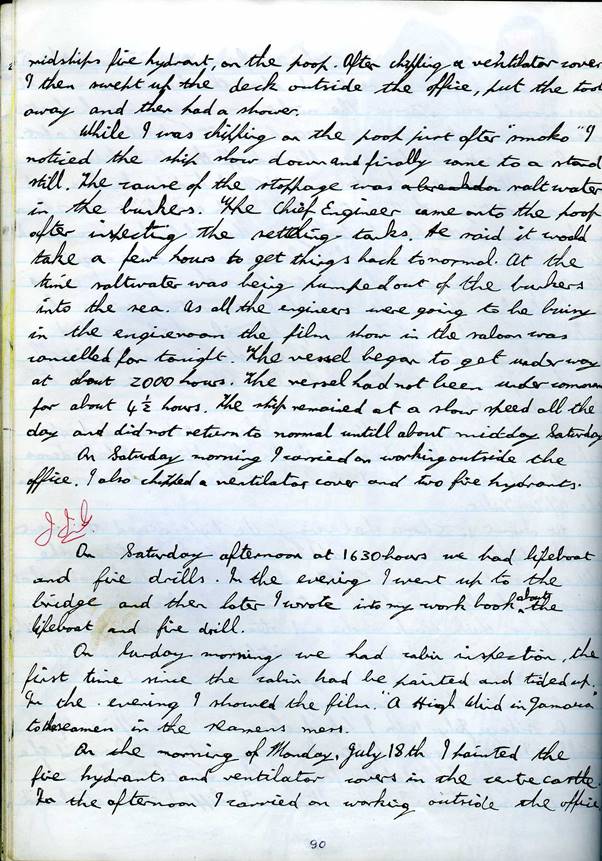 midships fire hydrant, on the poop. After chipping a ventilator cover
I then swept up the deck outside the office, put the tools
away and then had a shower.
While I was chipping on the poop just after "smoko" I
noticed the ship slow down and finally come to a stand
still. The cause of the stoppage was salt water
in the bunkers. The Chief Engineer came onto the poop
after inspecting the settling tanks. He said it would
take a few hours to get things back to normal. At the
time saltwater was being pumped out of the bunkers
into the sea. As all the engineers were going to be busy
in the engineroom the film show in the saloon was
cancelled for tonight. The vessel began to get under way
at about 2000 hours. The vessel had not been under command
for about 4½ hours. The ship remained at a slow speed all the
day and did not return to normal untill about midday Saturday
On Saturday morning I carried on working outside the
office. I also chipped a ventilator cover and two fire hydrants.
On Saturday afternoon at 1630 hours we had lifeboat
and fire drills. In the evening I went up to the
bridge and then later I wrote into my work book about the
lifeboat and fire drill.
On Sunday morning we had cabin inspection, the
first time since the cabin had be painted and tidied up.
In the evening I showed the film. "A High Wind in Jamaica"
to the seamen in the seamens mess.
On the morning of Monday, July 18th I painted the
fire hydrants and ventilator covers in the centre castle.
In the afternoon I carried on working outside the office,
90